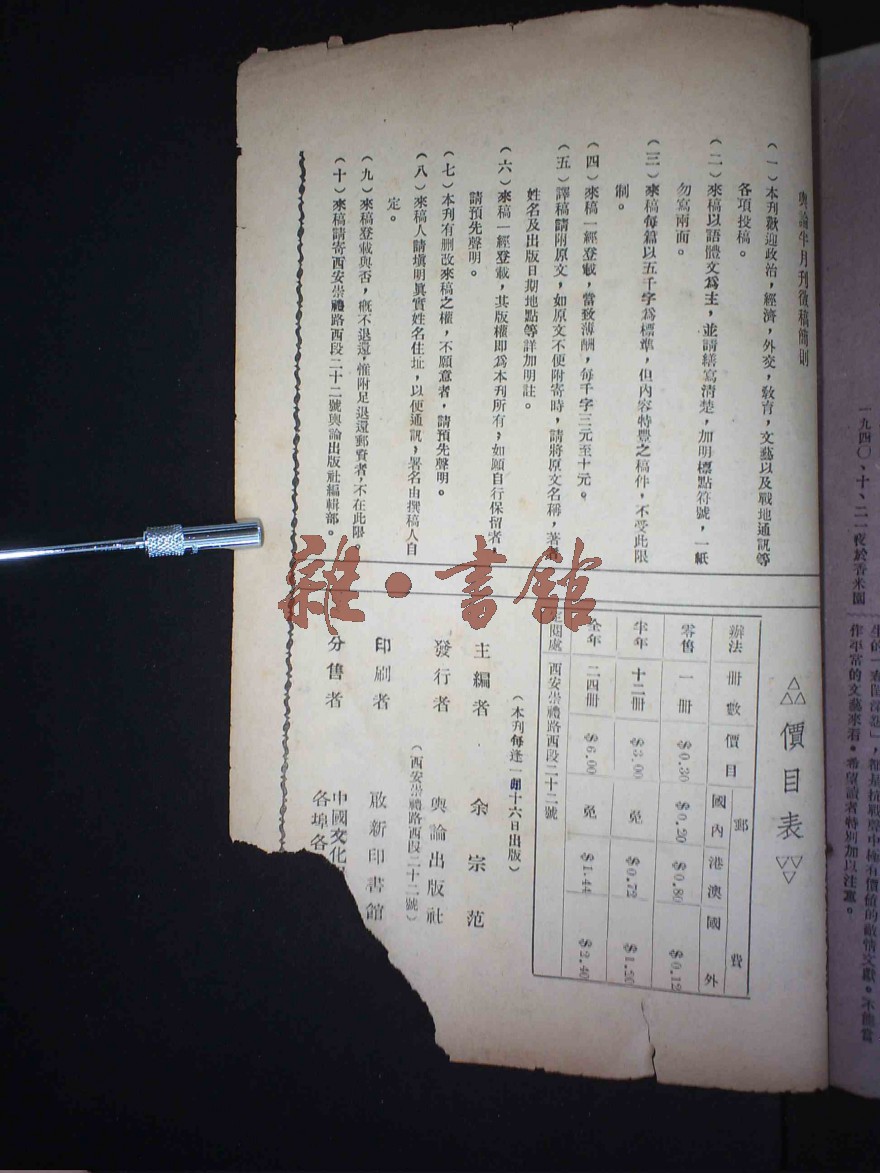 輿論半月刊徵稿簡則
(一)本刊歡迎政治,經濟,外交,敎育,文藝以及戰地通訊等
各項投稿。
(二)來稿以語體文爲主,並請繕寫清楚,加明標點符號,一紙
勿寫兩面。
(三)來稿每篇以五千字爲標準,但內容特豐之稿件,不受此限
制。
(四)來稿一經登載,當致薄酬,每千字三元至十元。
(五)譯稿請附原文,如原文不便附寄時,請將原文名稱,著者
姓名及出版日期地點等詳加明註。
(六)來稿一經登載,其版權即爲本刊所有,如願自行保留者,
請預先聲明。
(七)本刊有删改來稿之權,不願意者,請預先聲明。
(八)來稿人請塡明眞實姓名住址,以便通訊,署名由撰稿人自
定。
(九)來稿登載與否,槪不退還,惟附足退還郵資者,不在此限。
(十)來稿請寄西安崇禮路西段二十二號輿論出版社編輯部。
價目表
辦法 冊數 價目 郵費
國內 港澳 國外
零售 一冊 $0.30 $0.20 $0.80 $0.12
半年 十二冊 $3.00 免 $0.72 $1.20
全年 二四冊 $6.00 免 $1.44 $2.40
定閱處 西安崇禮路西段二十二號
(本刊每逢一朔十六日出版)
主編者 余宗范
發行者 輿論出版社
(西安崇禮路西段二十二號)
印刷者 啟新印書館
分售者 中國文化
各埠各
雜·書館
一九四〇、十、二一夜於香米園
作平常的文藝來看。希望讀者特別加以注意。